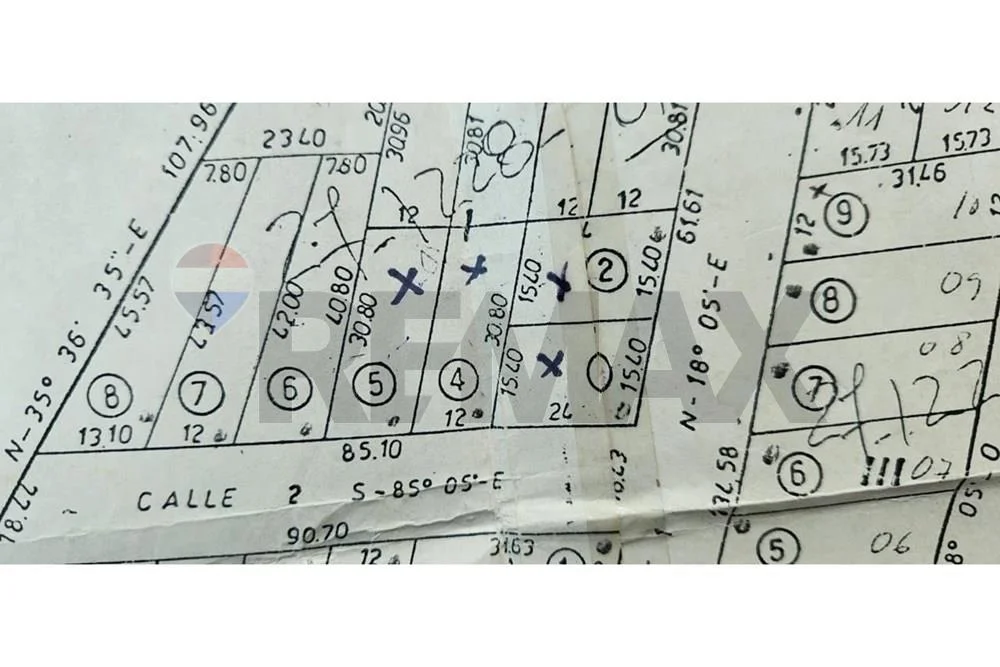 107.96
2340
20
30.96
30.81
30.81
15.73
15.73
31.46
7.80
7.80
12
12
12
61.61
12
9
10
N-35° 36' 35"-E
45.57
43.57
42.00
40.80
30.80
30.80
15.40
2
15.40
N-18° 05'-E
8
09
08
8
7
6
5
4
15.40
15.40
7
13.10
12
12
24
85.10
134.58
6
07
18.44
CALLE 2 S-85° 05'-E
10.43
05'
8°
90.70
12
31.63
5
06
RE/MAX